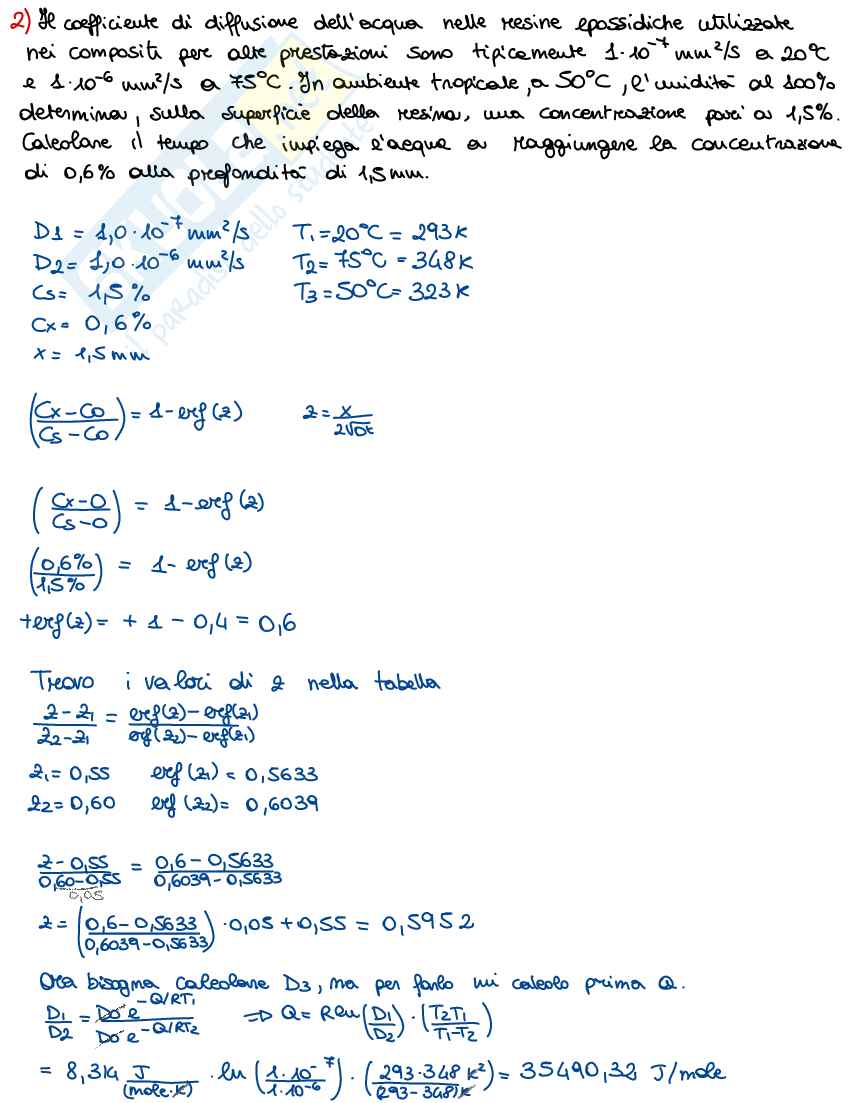 2) Il coefficiente di diffusione dell'acqua nelle resine epossidiche utilizzate
nei compositi per alte prestazioni sono tipicamente 1·10⁻⁷ mm²/s a 20°C
e 1·10⁻⁶ mm²/s a 75°C. In ambiente tropicale, a 50°C, l'umidità al 100%
determina, sulla superficie della resina, una concentrazione pari a 1,5%.
Calcolare il tempo che impiega l'acqua a raggiungere la concentrazione
di 0,6% alla profondità di 1,5mm.
D1 = 1,0·10⁻⁷ mm²/s T₁=20°C = 293K
D2= 1,0·10⁻⁶ mm²/s T₂= 75°C = 348K
Cs= 1,5% T₃=50°C= 323K
Cx= 0,6%
x= 1,5mm
(Cx-C0/Cs-C0) = 1-erf(z) z= x/2√Dt
(Cx-0/Cs-0) = 1-erf(z)
(0,6%/1,5%) = 1- erf(z)
+erf(z)= + 1 - 0,4 = 0,6
Trovo i valori di z nella tabella
z-z₁/z₂-z₁ = erf(z)-erf(z₁)/erf(z₂)-erf(z₁)
z₁= 0,55 erf(z₁) = 0,5633
z₂=0,60 erf(z₂)= 0,6039
z-0,55/0,60-0,55 = 0,6-0,5633/0,6039-0,5633
0,05
z= (0,6-0,5633/0,6039-0,5633)·0,05+0,55 = 0,5952
Ora bisogna calcolare D3, ma per farlo mi calcolo prima Q.
D₁/D₂ = D0 e^-Q/RT₁/D0 e^-Q/RT₂ ⇒ Q= R ln(D₁/D₂)·(T₂T₁/T₁-T₂)
= 8,314 J/(mole·K) · ln(1·10⁻⁷/1·10⁻⁶)·(293·348 K²/(293-348)K)= 35490,32 J/mole
SKUOLA.net
il paradiso dello studente